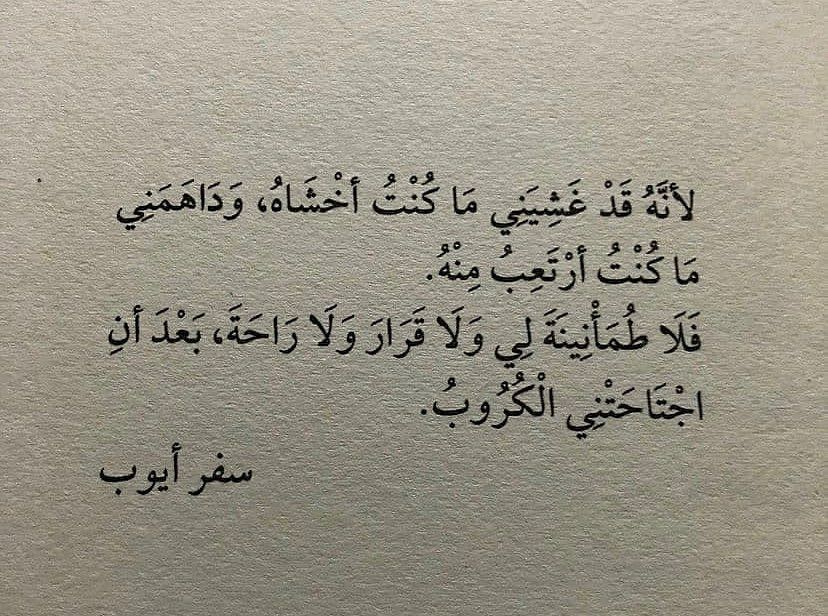 لأنَّهُ قَدْ غَشِيَنِي مَا كُنْتُ أخْشَاهُ، وَدَاهَمَنِي
مَا كُنْتُ أرْتَعِبُ مِنْهُ.
فَلَا طُمَأْنِينَةَ لِي وَلَا قَرَارَ وَلَا رَاحَةَ، بَعْدَ أنِ
اجْتَاحَتْنِي الْكُرُوبُ.
سفر أيوب